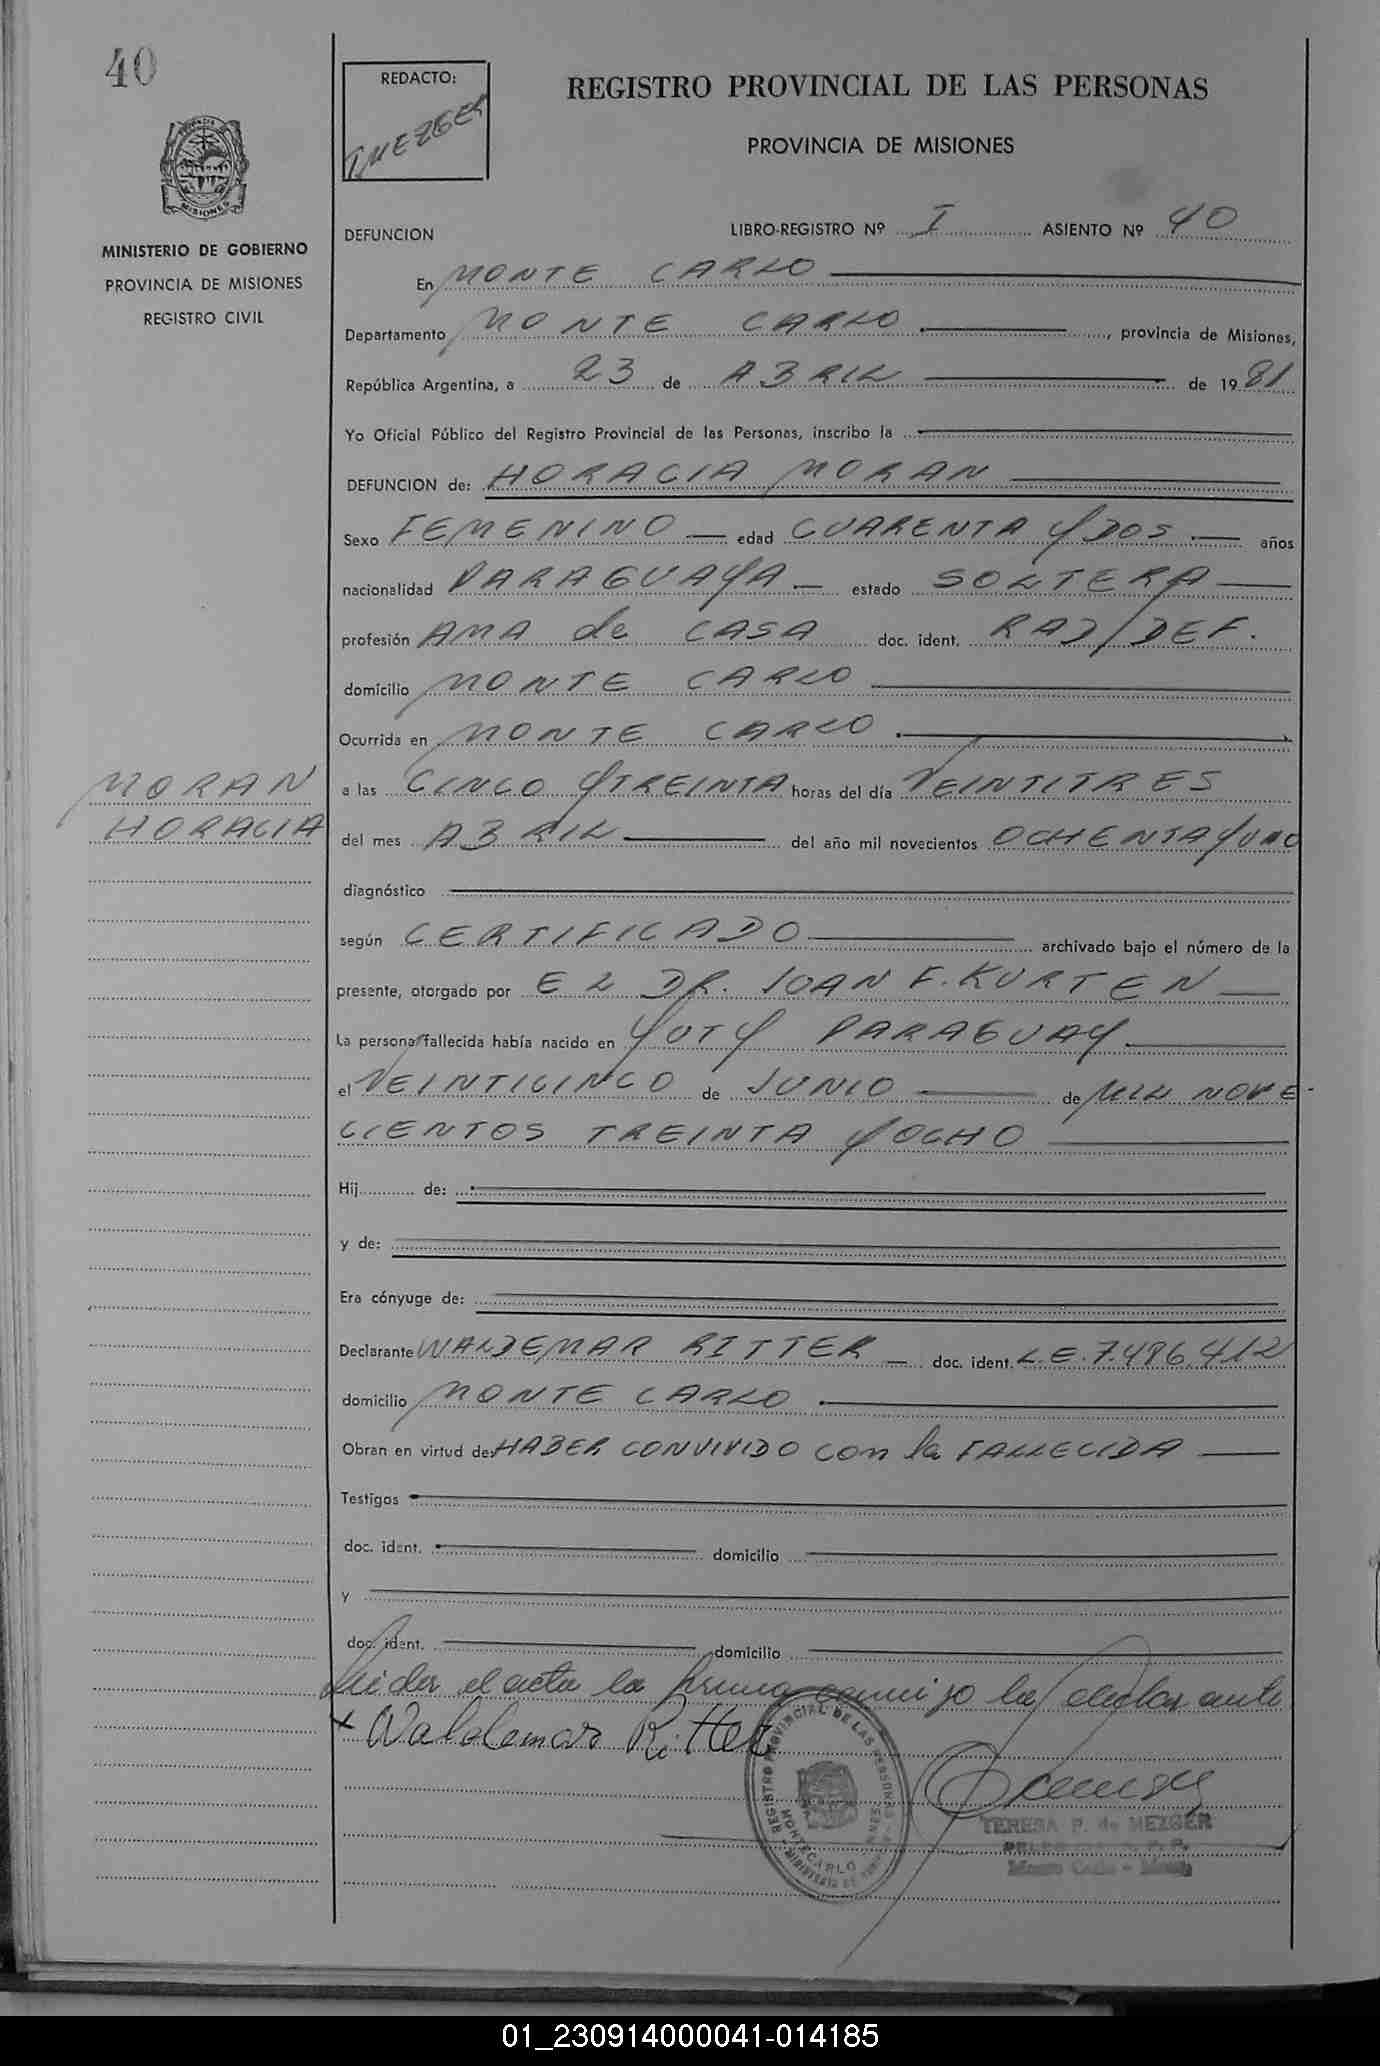 40
REDACTO:
T.MEZGER
REGISTRO PROVINCIAL DE LAS PERSONAS
PROVINCIA DE MISIONES
MISIONES
MINISTERIO DE GOBIERNO
PROVINCIA DE MISIONES
REGISTRO CIVIL
DEFUNCION
LIBRO-REGISTRO Nº I ASIENTO Nº 40
En MONTE CARLO
Departamento MONTE CARLO, provincia de Misiones,
República Argentina, a 23 de ABRIL de 1981
Yo Oficial Público del Registro Provincial de las Personas, inscribo la
DEFUNCION de: HORACIA MORAN
Sexo FEMENINO edad CUARENTA Y DOS años
nacionalidad PARAGUAYA estado SOLTERA
profesión AMA de CASA doc. ident. RAD/DEF.
domicilio MONTE CARLO
Ocurrida en MONTE CARLO
MORAN
HORACIA
a las CINCO Y TREINTA horas del día VEINTITRES
del mes ABRIL del año mil novecientos OCHENTA Y UNO
diagnóstico
según CERTIFICADO archivado bajo el número de la
presente, otorgado por EL DR. JOAN F. KURTEN
La persona fallecida había nacido en YUTY PARAGUAY
el VEINTICINCO de JUNIO de MIL NOVE
CIENTOS TREINTA Y OCHO
Hij de:
y de:
Era cónyuge de:
Declarante WALDEMAR RITTER doc. ident. L.E. 7.486.412
domicilio MONTE CARLO
Obran en virtud de HABER CONVIVIDO con la FALLECIDA
Testigos
doc. ident. domicilio
y
doc. ident. domicilio
el acta la firma conmigo el declarante
x Waldemar Ritter
REGISTRO PROVINCIAL DE LAS PERSONAS
MONTECARLO
TERESA P. de MEZGER
Monte Carlo - Mnes
01_230914000041-014185